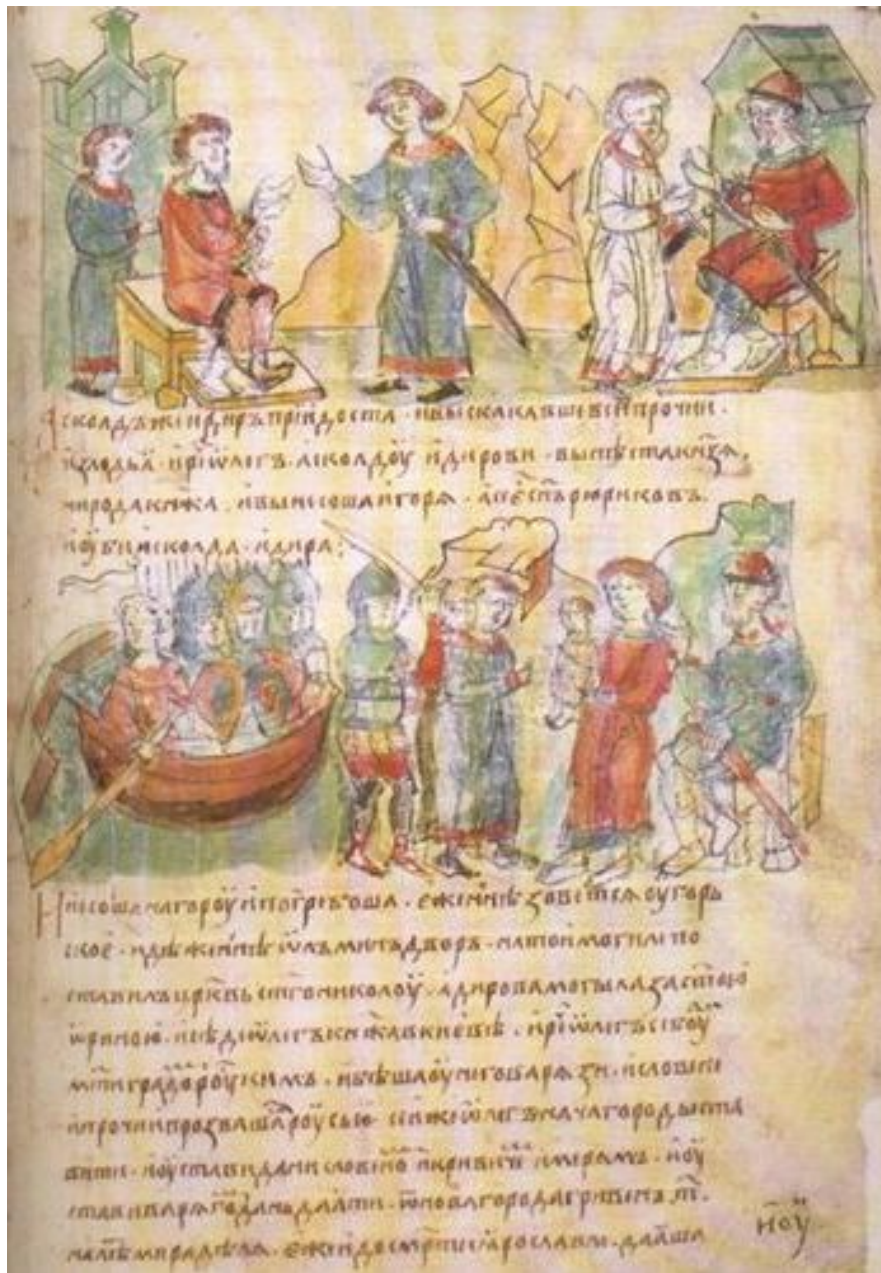 Асколдъ же и Диръ придоста · и выскакавше вси прочии ·
из лодьꙗ · и рⷱ҇е ѡлегъ · асколдоу и дирови · вы нѣста кнѧзѧ ·
ни рода кнѧжа · и вынесоша игорѧ · а се есть сⷩ҇ъ рюриковъ ·
и оубиша асколда · и дира :
Несоша на гороу и погребоша · еже нынѣ зоветсѧ оугорь
ское · идѣже нынѣ ѡлъминъ дворъ · на той могилѣ по
ставилъ цр҃квь ст҃го николоу · а дирова могыла за ст҃ою
ѡриною · и сѣде ѡлегъ кнѧжа в киевѣ · и рⷱ҇е ѡлегъ се боуди
мт҃и градомъ роускимъ · и бѣша оу него варѧзи · и словѣне
и прочии прозвашасѧ роусью · се же ѡлегъ нача городы ста
вити · и оустави дани словѣномъ и кривичемъ и мерѧмъ · и оу
стави варѧгомъ дань даѧти · ѿ новагорода гривенъ т҃ ·
на лѣто мира дѣлѧ · еже и до смр҃ти ꙗрославлѧ даꙗша
и оу